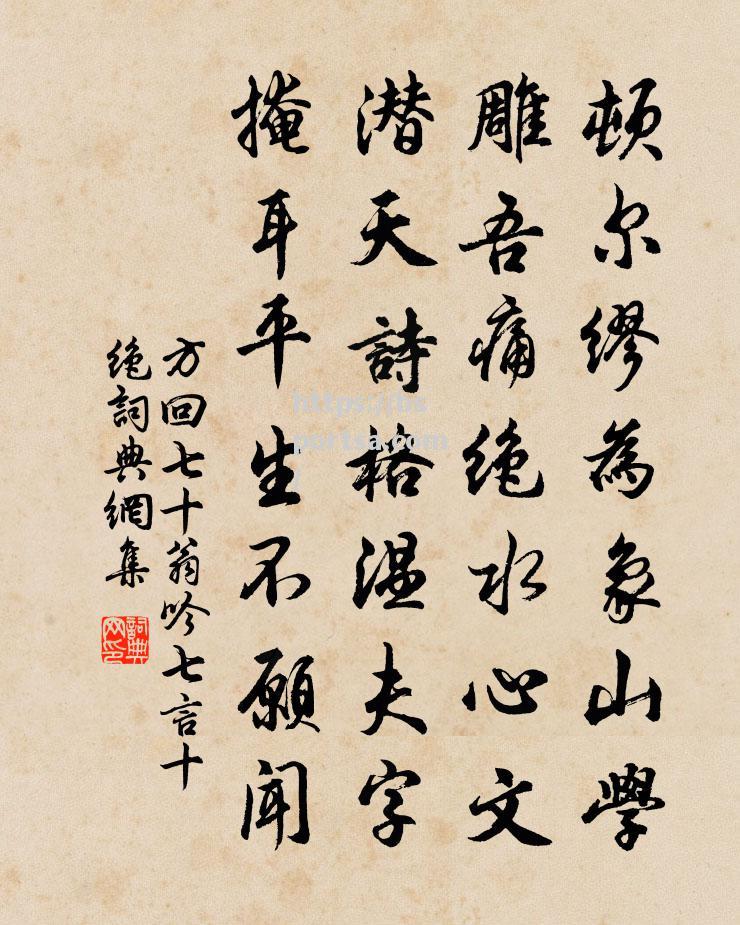 頓尔繆為象山學
雕吾痛絶水心文
潛天詩格温夫字
掩耳平生不願聞
方回七十翁吟七言十
絶詞典網集
詞典网印
https://bs
portsa.com
/